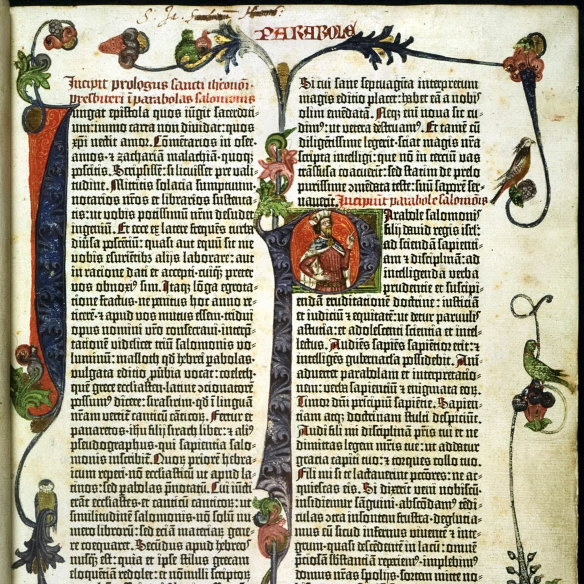 PARABOLE
Incipit prologus sancti iheronimi
presbiteri i parabolas salomonis
Iungat epistola quos iũgit sacerdoti-
um: immo carta non dividat: quos
xp̃i nectit amor. Cõmẽtarios in osee-
amos ⁊ zachariam malachiam· quoqʒ
poscitis. Scripsissẽ: si licuisset pre vali-
tudine. Mittitis solacia sumptuum·
notarios nr̃os et librarios sustenta-
tis: ut vobis potissimũ nr̃m desudet
ingeniũ. Et ecce ex latere frequẽs turba
diũsa poscẽtiũ: quasi aut equũ sit me
vobis esuriẽtibʒ alijs laborare: aut
in ratione dati et accepti· cuiqʒ preter
vos obnoxiꝰ sim. Itaqʒ lõga egrota-
tione fractus· ne penitus hoc anno re-
ticerẽ· ⁊ apud vos mutus essem· tridui
opus nomini vr̃o consecravi· interp̃-
tationẽ videlicet triũ salomonis vo-
luminũ: masloth qd̃ hebrei pabolas·
vulgata editio ṗbia vocat: coeleth·
quẽ grece ecclesiasten· latine ↄcionatorẽ
possumꝰ dicere: sirasirim· qd̃ i linguã
nr̃am vertit̃ canticũ cãticoʒ. Fertur et
panaretos· ihu filij sirach liber: ⁊ aliꝰ
pseudographus· qui sapientia salo-
monis inscribit̃. Quoʒ priorẽ hebra-
icum reperi· nõ ecclesiasticũ ut apud la-
tinos: sed pabolas p̃notatũ. Cui iũcti
erãt ecclesiastes· et canticũ canticoʒ: ut
similitudinẽ salomonis· nõ solũ nu-
mero librorũ: sed etiã materiaʒ gene-
re coequaret. Secũdus apud hebreos
nusqʒ est: quia et ipse stilus grecam
eloquẽtiã redolet: et nõnulli scriptorũ
Si cui sane septuagĩta interpretum
magis editio placet: habet eã a nobis
olim emẽdatã. Neqʒ eni nova sic cu-
dimꝰ: ut vetera destruamꝰ. Et tamẽ cũ
diligẽtissime legerit· sciat magis nr̃a
scripta intelligi: que nõ in terciũ vas
trãsfusa coacuerĩt: sed statim de prelo
purissime ↄmẽdata teste: suũ saporẽ ser-
vaverĩt. Incipiũt parabole salomois
Parabole salomonis
filij david regis isrl̃:
ad sciendã sapienti-
am ⁊ disciplinã: ad
intelligẽda verba
prudentie et suscipi-
endã eruditationẽ doctrine: iusticiã
et iudiciũ ⁊ equitatẽ: ut detur parvulis
astutia: et adolescenti scientia et intel-
lectus. Audiẽs sapiẽs sapiẽtior erit: ⁊
intelligẽs gubernacla possidebit. Ani-
advertet parabolam et interpretatio-
nem: verba sapientiũ ⁊ enigmata eoʒ.
Timor dñi principiũ sapiẽtie. Sapien-
tiam atqʒ doctrinam stulti despiciũt.
Audi fili mi disciplinã pr̃is tui et ne
dimittas legem mr̃is tue: ut addatur
gracia capiti tuo: ⁊ torques collo tuo.
Fili mi si te lactaverint pctõres: ne ac-
quiescas eis. Si dixerĩt veni nobiscũ·
insidiemur sãguini· abscõdamꝰ tẽdi-
culas ↄtra insontem frustra· deglutia-
mus eũ sicud infernus vivente ⁊ inte-
grum· quasi descẽdentẽ in lacũ: omnẽ
p̃ciosã s̃bstantiã reperiemꝰ· implebimꝰ
domus nr̃as spolijs· sortem mitte no-